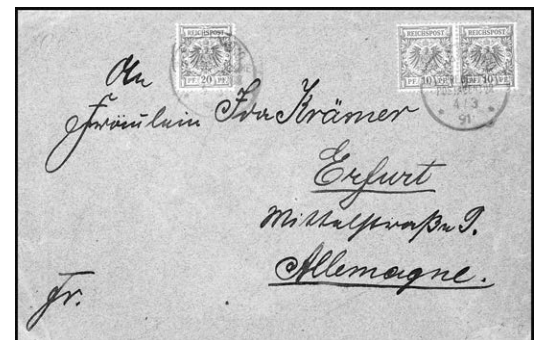 REICHSPOST
PF. 20 PF.
REICHSPOST REICHSPOST
PF. 10 PF. PF. 10 PF.
4/3
91
An
Fräulein Ida Krämer
Erfurt
Mittelstraße 9.
Allemagne.
Fr.